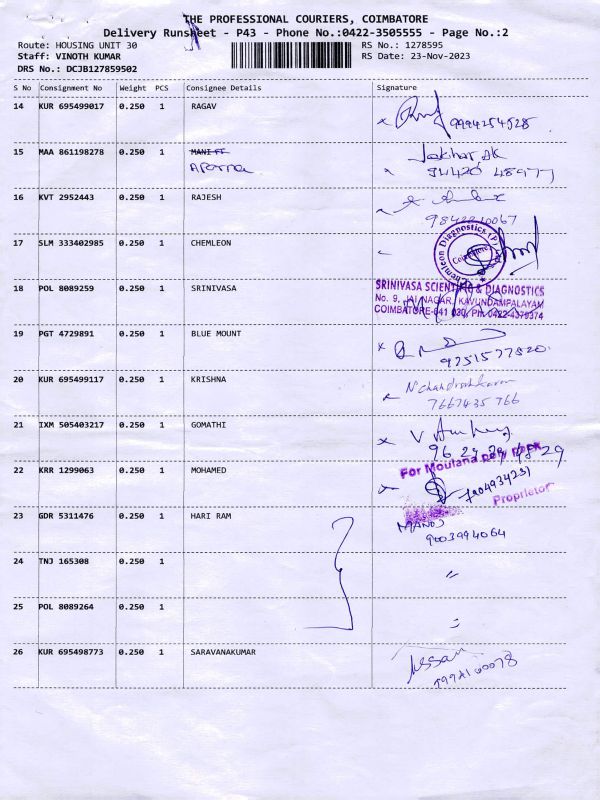 THE PROFESSIONAL COURIERS, COIMBATORE
Delivery Runsheet - P43 - Phone No.:0422-3505555 - Page No.:2
Route: HOUSING UNIT 30 RS No.: 1278595
Staff: VINOTH KUMAR RS Date: 23-Nov-2023
DRS No.: DCJB127859502
S No Consignment No Weight PCS Consignee Details Signature
14 KUR 695499017 0.250 1 RAGAV
9994254528
15 MAA 861198278 0.250 1 MANI FT
Aparna
94420 48977
16 KVT 2952443 0.250 1 RAJESH
17 SLM 333402985 0.250 1 CHEMLEON
Chemicon Diagnostics (P)
Coimbatore
18 POL 8089259 0.250 1 SRINIVASA
SRINIVASA SCIENTIFIC & DIAGNOSTICS
No. 9, JAI NAGAR, KAVUNDAMPALAYAM
COIMBATORE-641 030, Ph: 0422-4379374
19 PGT 4729891 0.250 1 BLUE MOUNT
9751577820
20 KUR 695499117 0.250 1 KRISHNA
7667435 766
21 IXM 505403217 0.250 1 GOMATHI
22 KRR 1299063 0.250 1 MOHAMED
For Moulana
Proprietor
23 GDR 5311476 0.250 1 HARI RAM
MANOJ
9003994064
24 TNJ 165308 0.250 1
〃
25 POL 8089264 0.250 1
〃
26 KUR 695498773 0.250 1 SARAVANAKUMAR